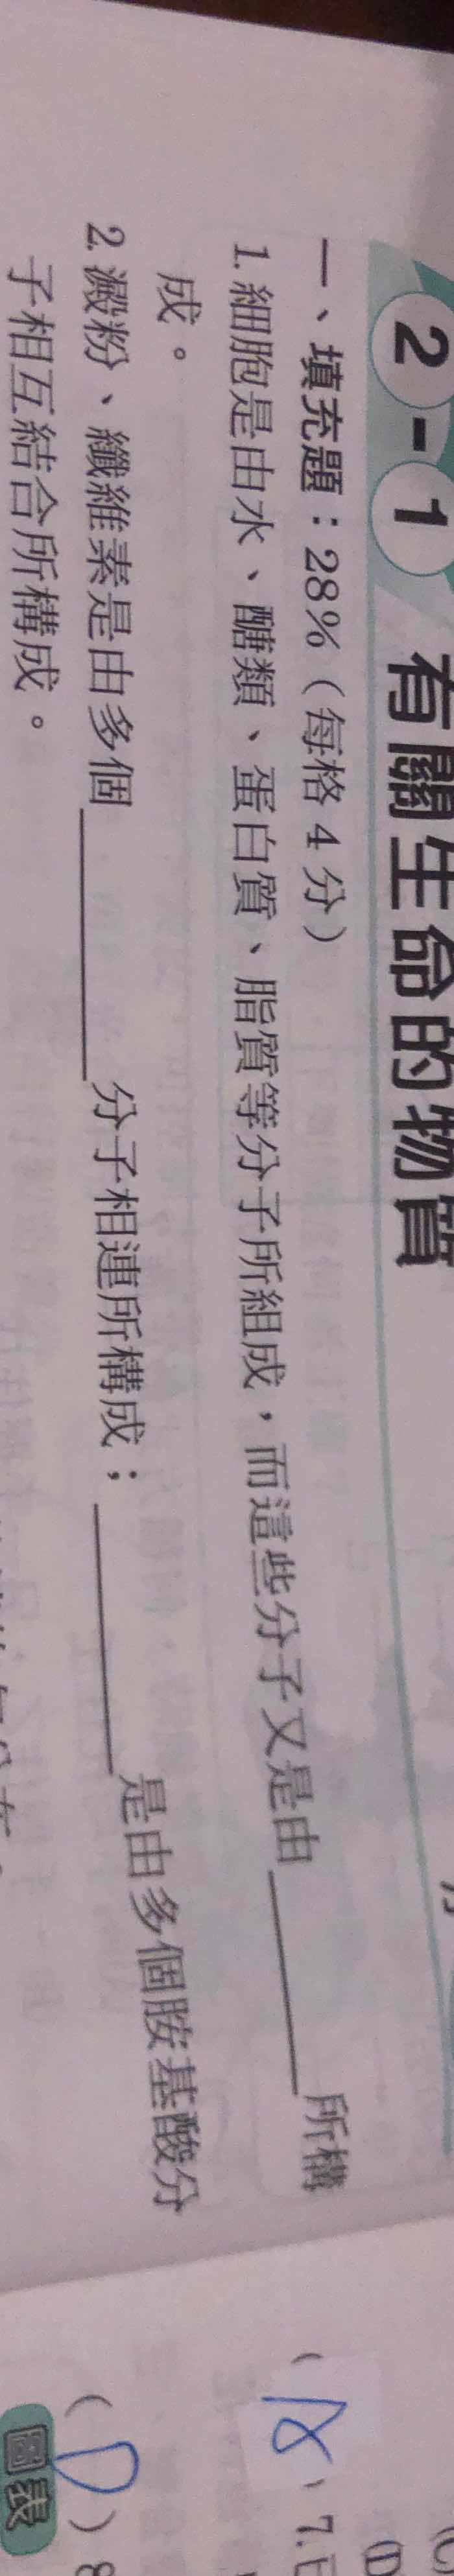 2-1 有關生命的物質
一、填充題：28%（每格 4 分）
1. 細胞是由水、醣類、蛋白質、脂質等分子所組成，而這些分子又是由________所構
成。
2. 澱粉、纖維素是由多個________分子相連所構成；________是由多個胺基酸分
子相互結合所構成。
7.
(D) 8
圖表